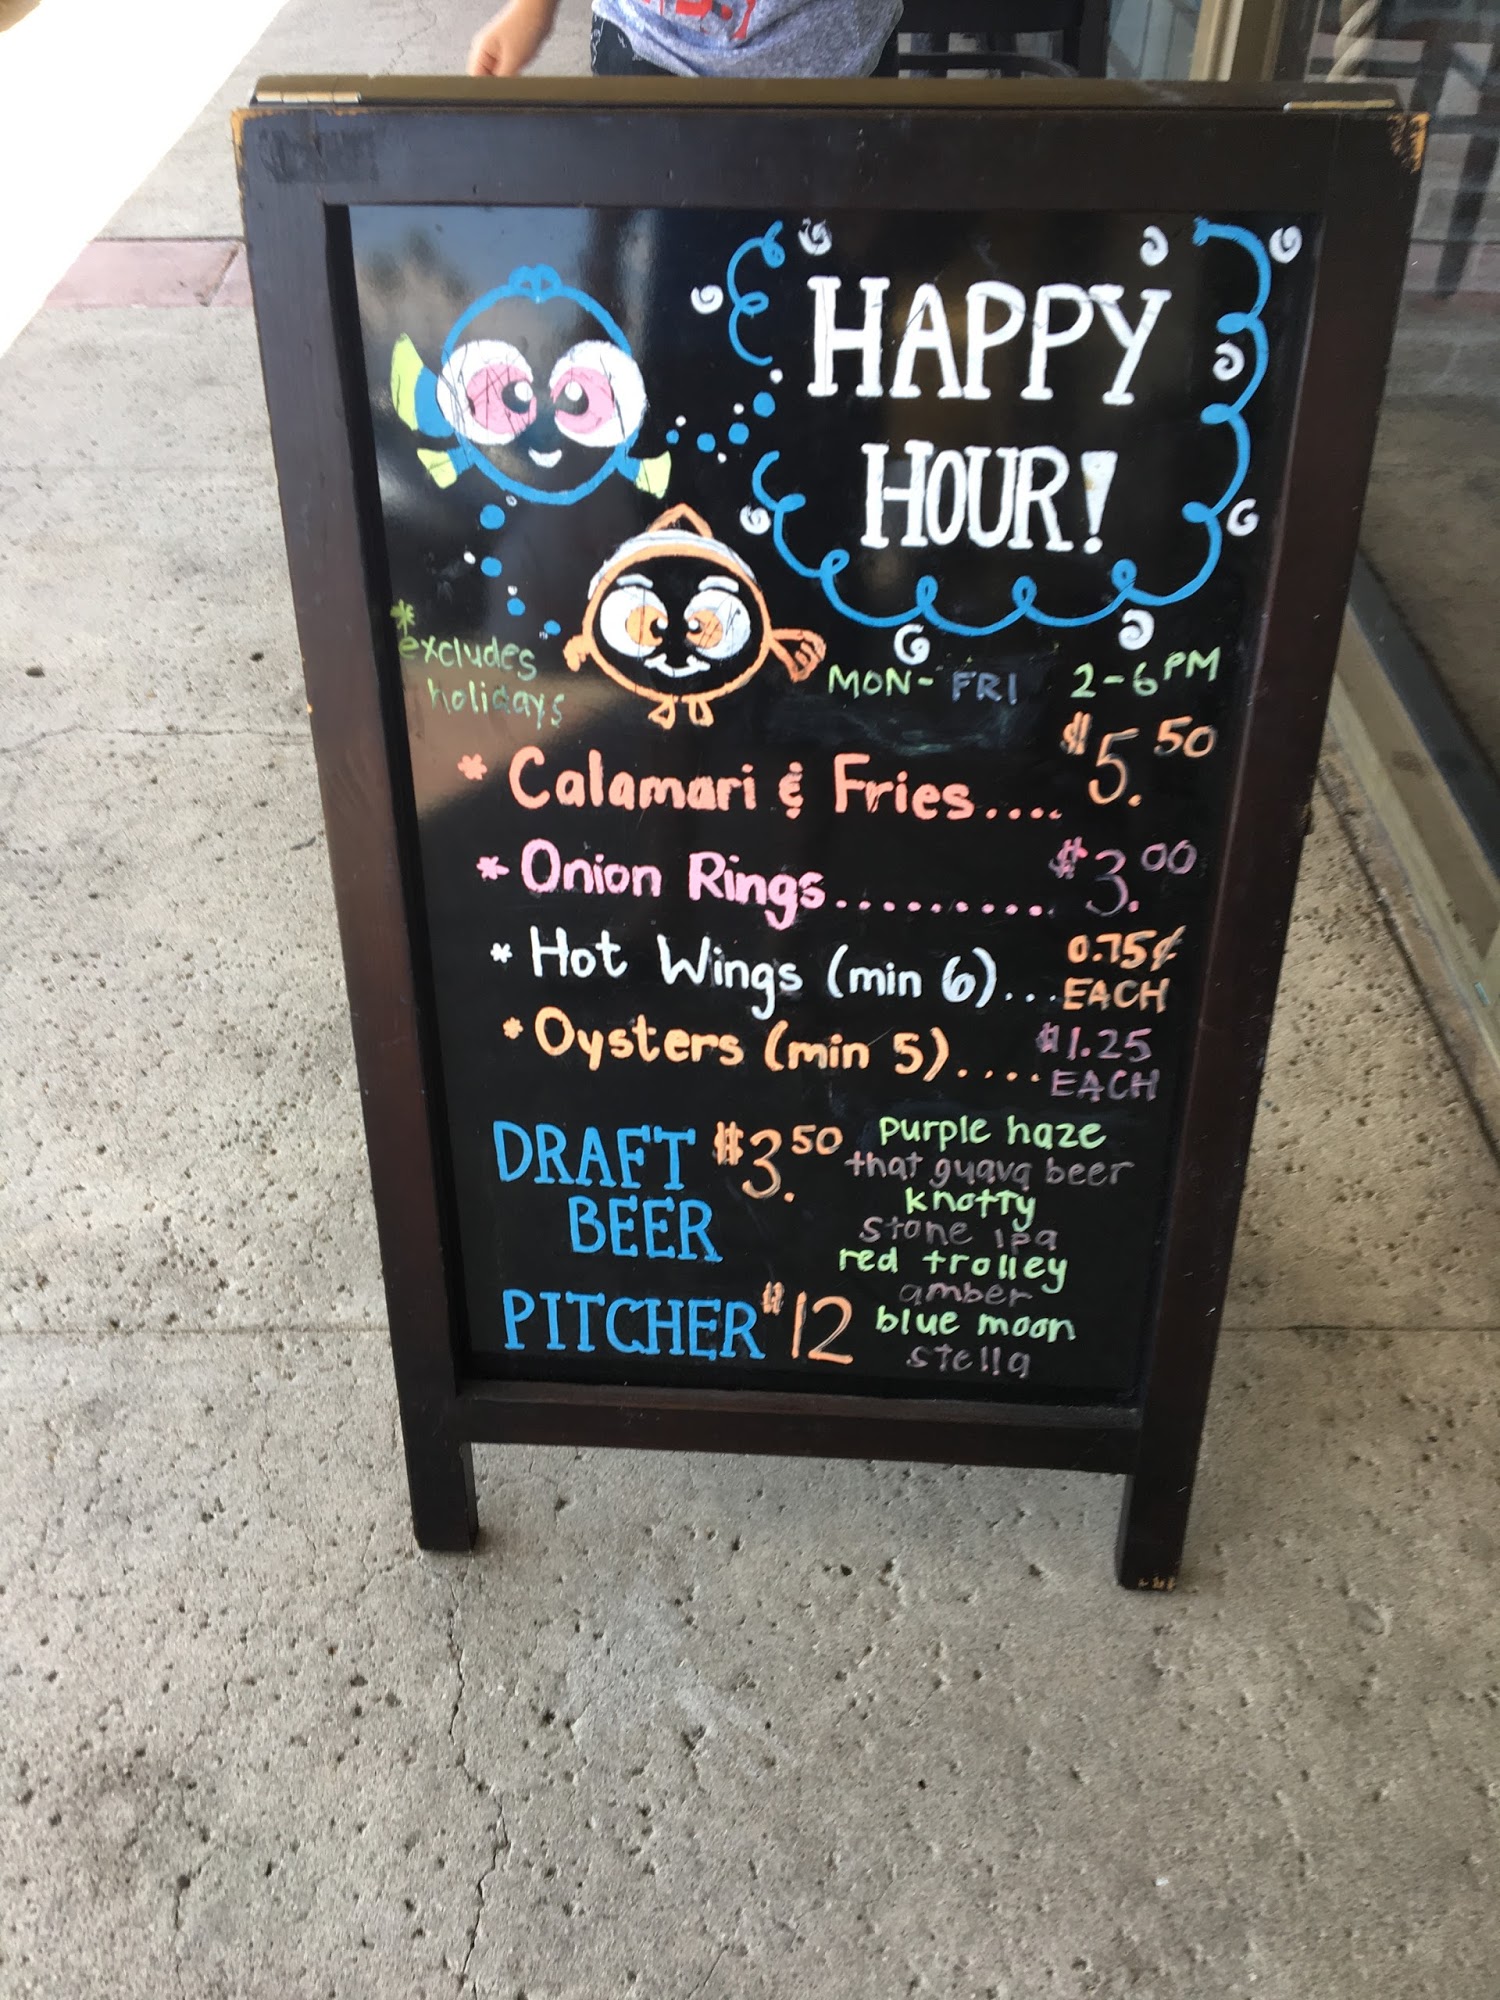 HAPPY
HOUR!
*excludes
holidays
MON- FRI 2-6PM
* Calamari & Fries.... $5.50
* Onion Rings.......... $3.00
* Hot Wings (min 6)... 0.75¢
EACH
* Oysters (min 5).... $1.25
EACH
DRAFT $3.50
BEER
PITCHER $12
purple haze
that guava beer
knotty
stone ipa
red trolley
amber
blue moon
stella